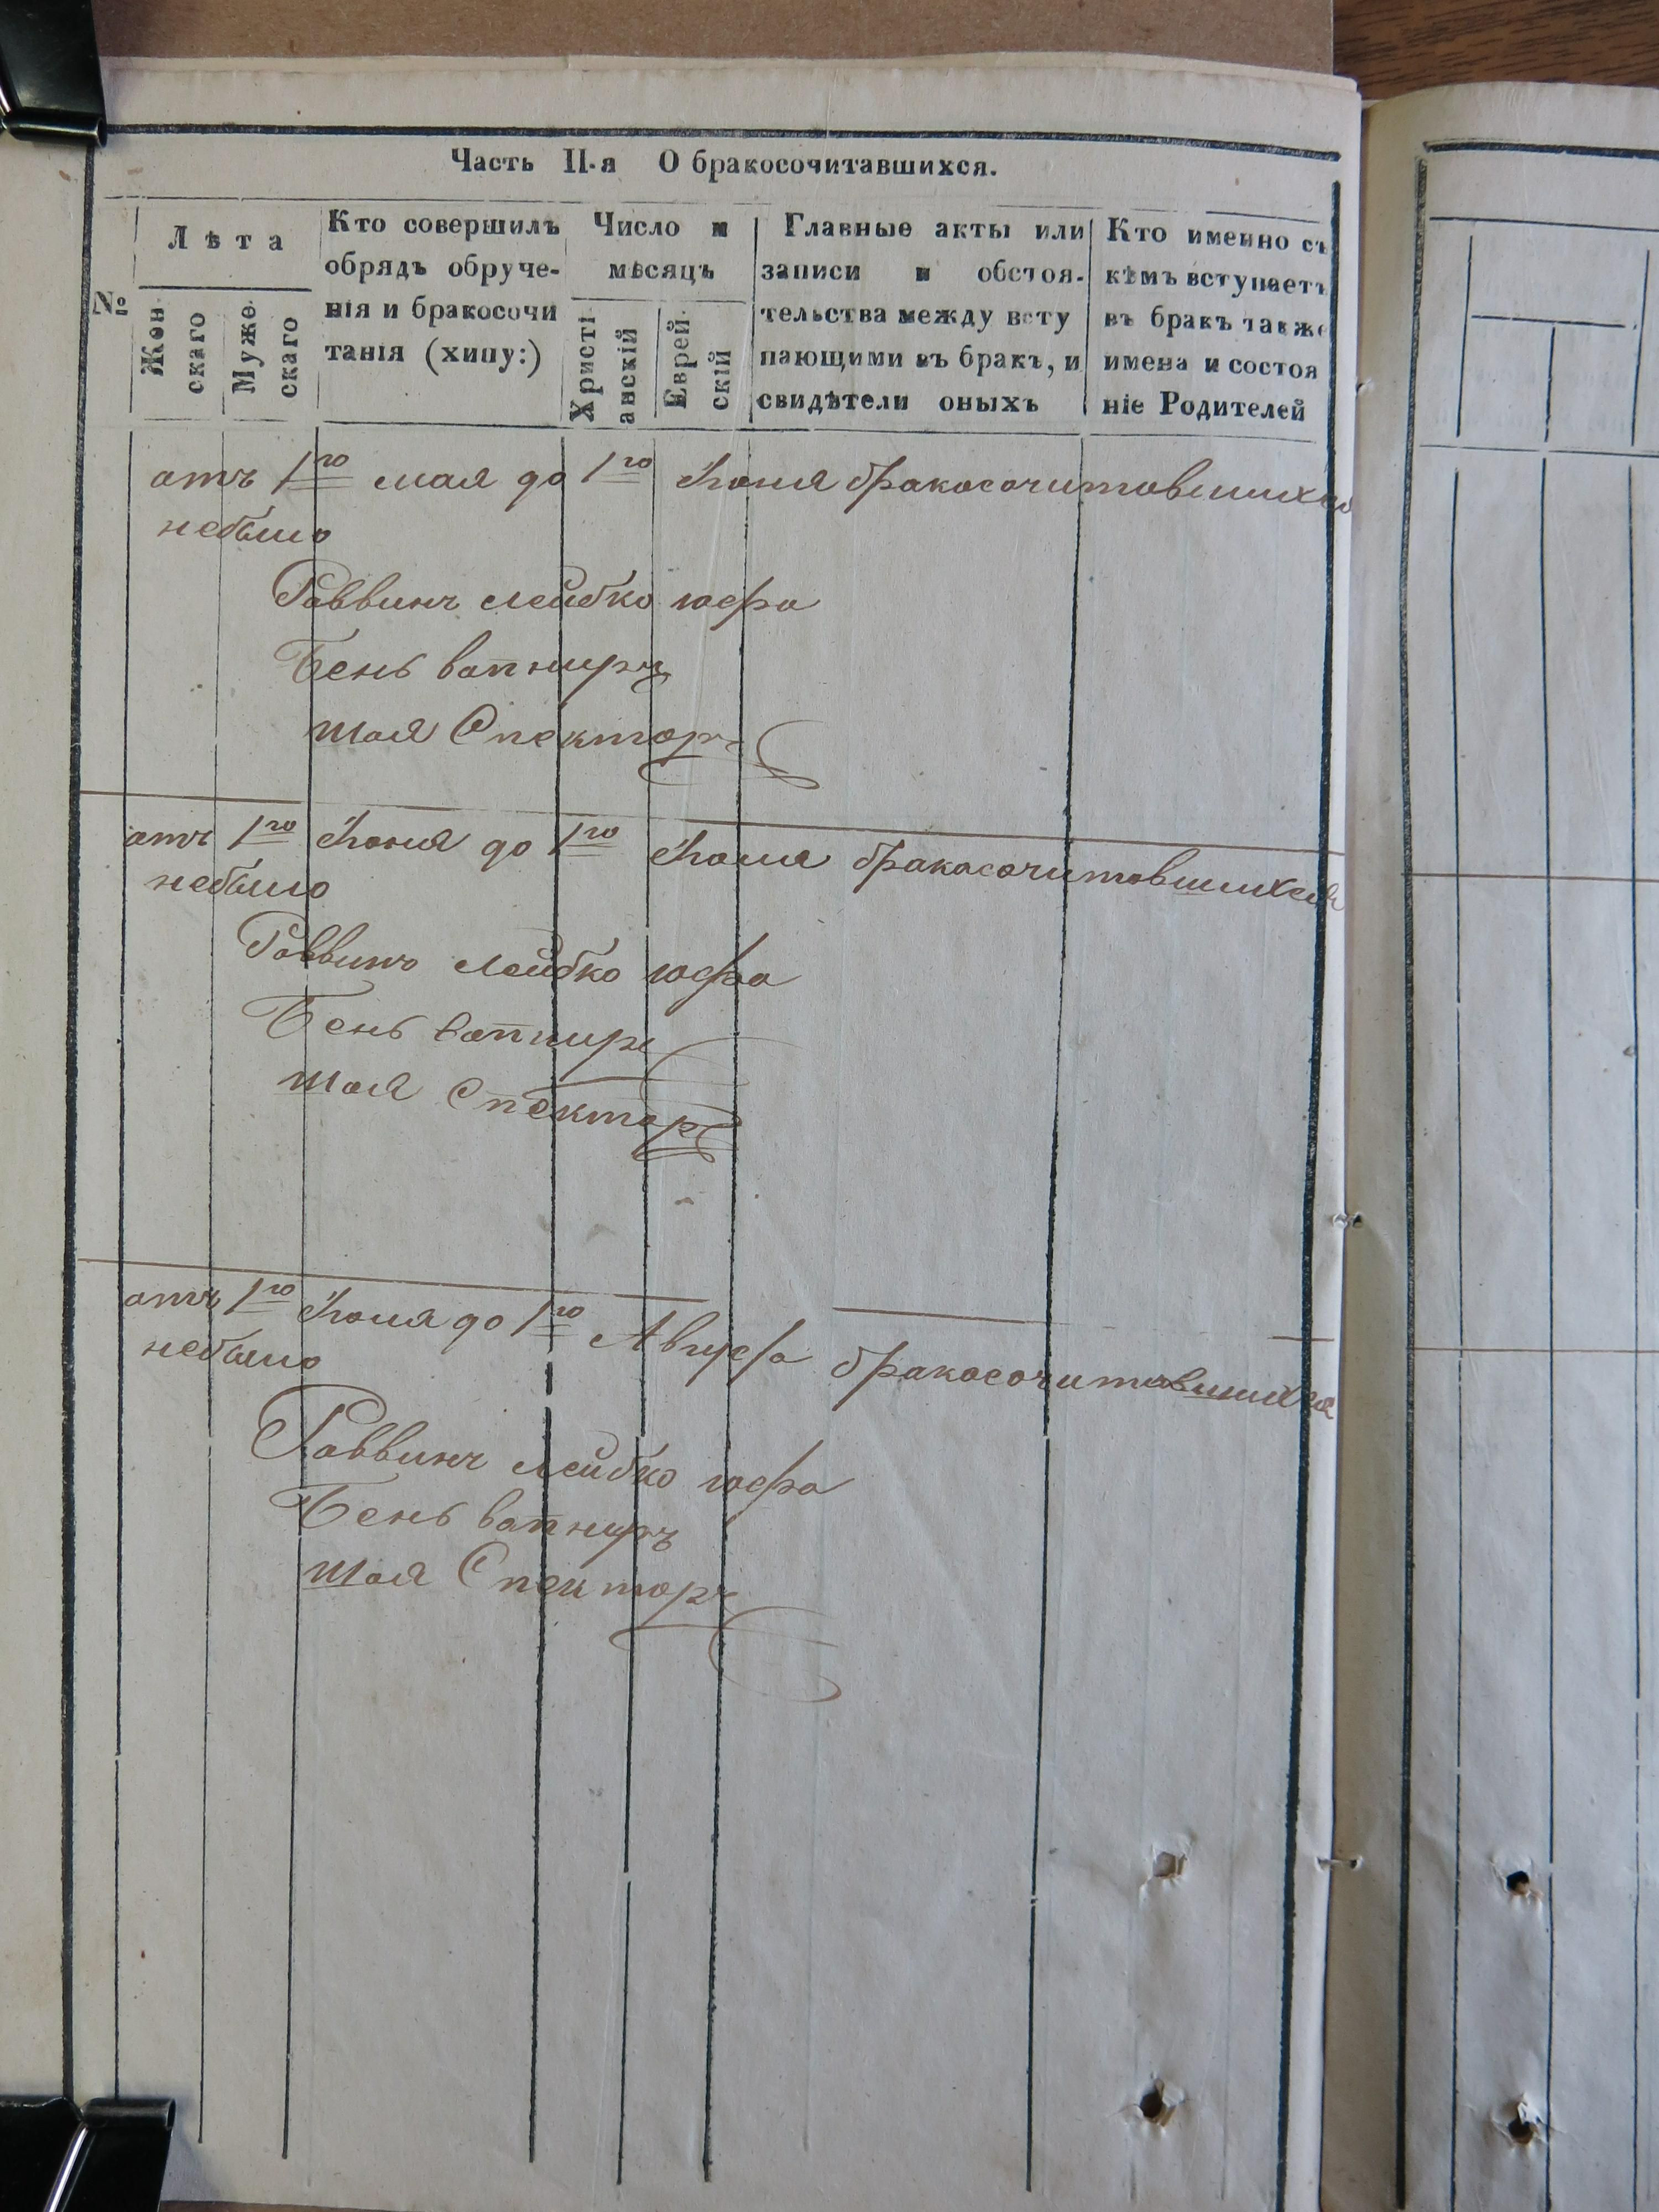 Часть II-я О бракосочитавшихся.
№
Лѣта
Женскаго
Мужескаго
Кто совершилъ
обрядъ обруче-
нія и бракосочи
танія (хипу:)
Число и
мѣсяцъ
Христіанскій
Еврейскій
Главные акты или
записи и обстоя-
тельства между всту
пающими въ бракъ, и
свидѣтели оныхъ
Кто именно съ
кѣмъ вступаетъ
въ бракъ также
имена и состоя
ніе Родителей
отъ 1го мая до 1го Іюня бракосочитовшихся
небыло
Раввинъ Лейбко Юфа
Бень Вапниръ
Шая Спекторъ
отъ 1го Іюня до 1го Іюля бракосочитовшихся
небыло
Раввинъ Лейбко Юфа
Бень Вапниръ
Шая Спекторъ
отъ 1го Іюля до 1го Августа бракосочитовшихся
небыло
Раввинъ Лейбко Юфа
Бень Вапниръ
Шая Спекторъ